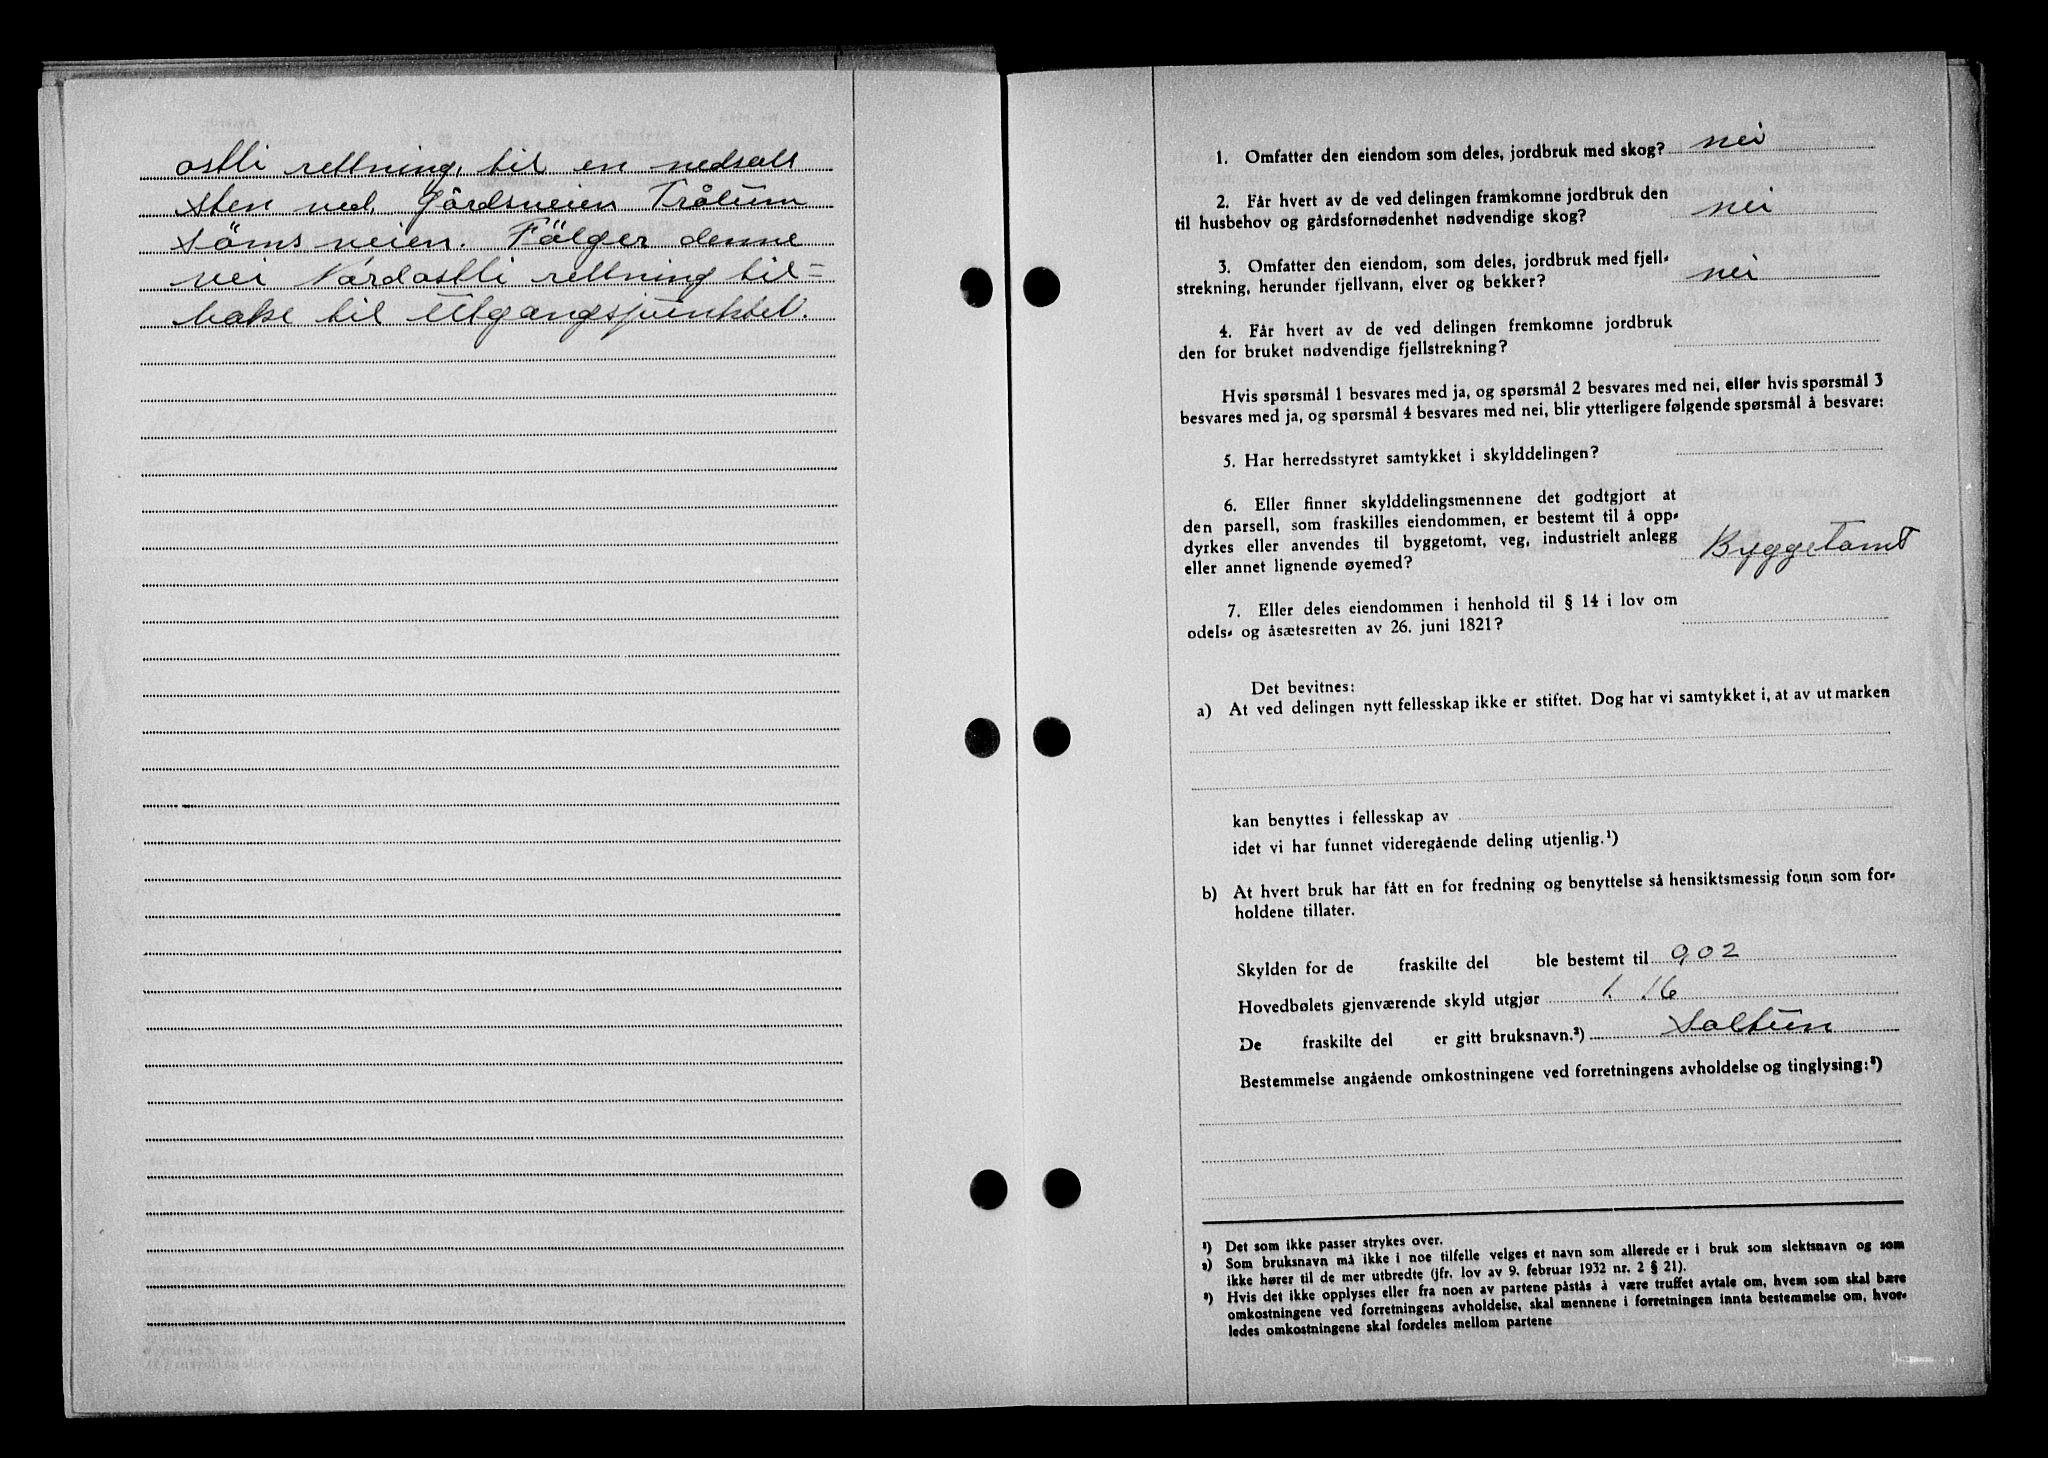 ostli rettning, til en nedsatt
Sten ved Gårdsveien Tråtum
Sömsveien. Fölger denne
vei Nordostli rettning til=
bake til Utgangspunktet.
1. Omfatter den eiendom som deles, jordbruk med skog? nei
2. Får hvert av de ved delingen framkomne jordbruk den
til husbehov og gårdsfornødenhet nødvendige skog? nei
3. Omfatter den eiendom, som deles, jordbruk med fjell-
strekning, herunder fjellvann, elver og bekker? nei
4. Får hvert av de ved delingen fremkomne jordbruk
den for bruket nødvendige fjellstrekning?
Hvis spørsmål 1 besvares med ja, og spørsmål 2 besvares med nei, eller hvis spørsmål 3
besvares med ja, og spørsmål 4 besvares med nei, blir ytterligere følgende spørsmål å besvare:
5. Har herredsstyret samtykket i skylddelingen?
6. Eller finner skylddelingsmennene det godtgjort at
den parsell, som fraskilles eiendommen, er bestemt til å opp-
dyrkes eller anvendes til byggetomt, veg, industrielt anlegg
eller annet lignende øyemed? Byggetomt
7. Eller deles eiendommen i henhold til § 14 i lov om
odels- og åsætesretten av 26. juni 1821?
Det bevitnes:
a) At ved delingen nytt fellesskap ikke er stiftet. Dog har vi samtykket i, at av utmarken
kan benyttes i fellesskap av
idet vi har funnet videregående deling utjenlig.¹)
b) At hvert bruk har fått en for fredning og benyttelse så hensiktsmessig form som for-
holdene tillater.
Skylden for de fraskilte del ble bestemt til 0,02
Hovedbølets gjenværende skyld utgjør 1.16
De fraskilte del er gitt bruksnavn.²) Soltun
Bestemmelse angående omkostningene ved forretningens avholdelse og tinglysing:³)
¹) Det som ikke passer strykes over.
²) Som bruksnavn må ikke i noe tilfelle velges et navn som allerede er i bruk som slektsnavn og som
ikke hører til de mer utbredte (jfr. lov av 9. februar 1932 nr. 2 § 21).
³) Hvis det ikke opplyses eller fra noen av partene påstås å være truffet avtale om, hvem som skal bære
omkostningene ved forretningens avholdelse, skal mennene i forretningen innta bestemmelse om, hvor-
ledes omkostningene skal fordeles mellom partene